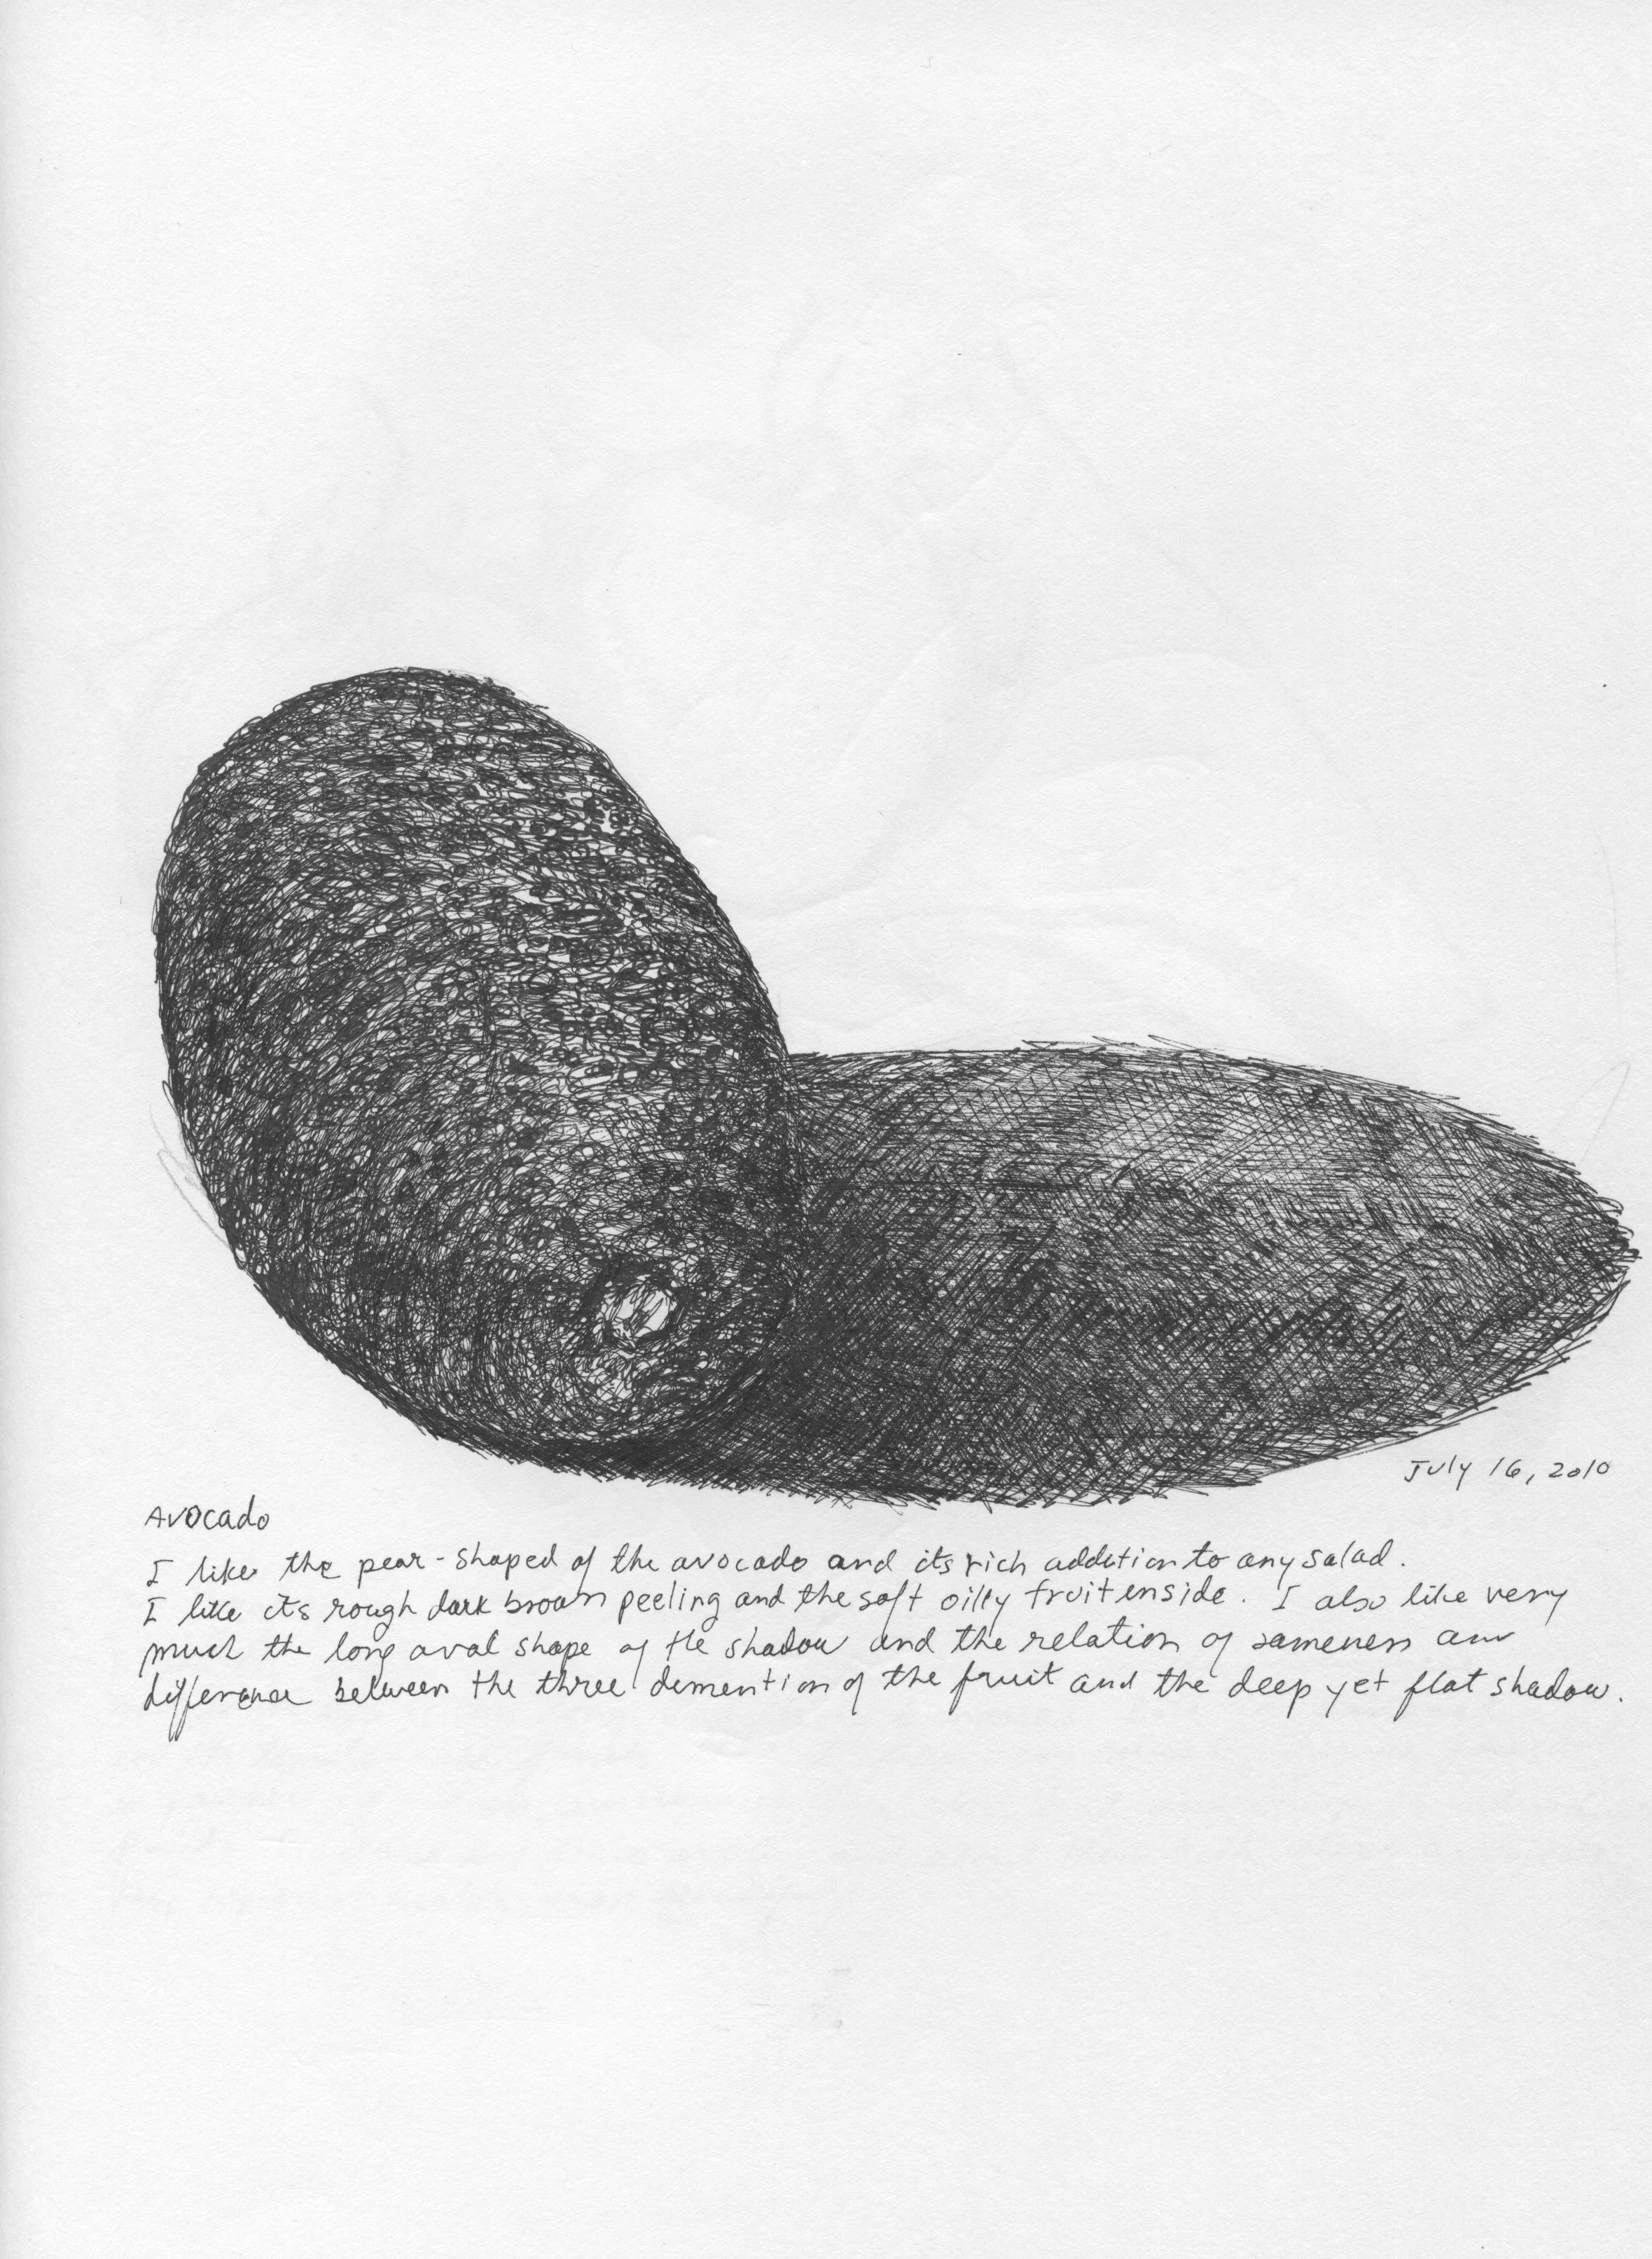 July 16, 2010
Avocado
I like the pear-shaped of the avocado and its rich addition to any salad.
I like its rough dark brown peeling and the soft oilly fruit inside. I also like very
much the long oval shape of the shadow and the relation of sameness and
difference between the three dimention of the fruit and the deep yet flat shadow.